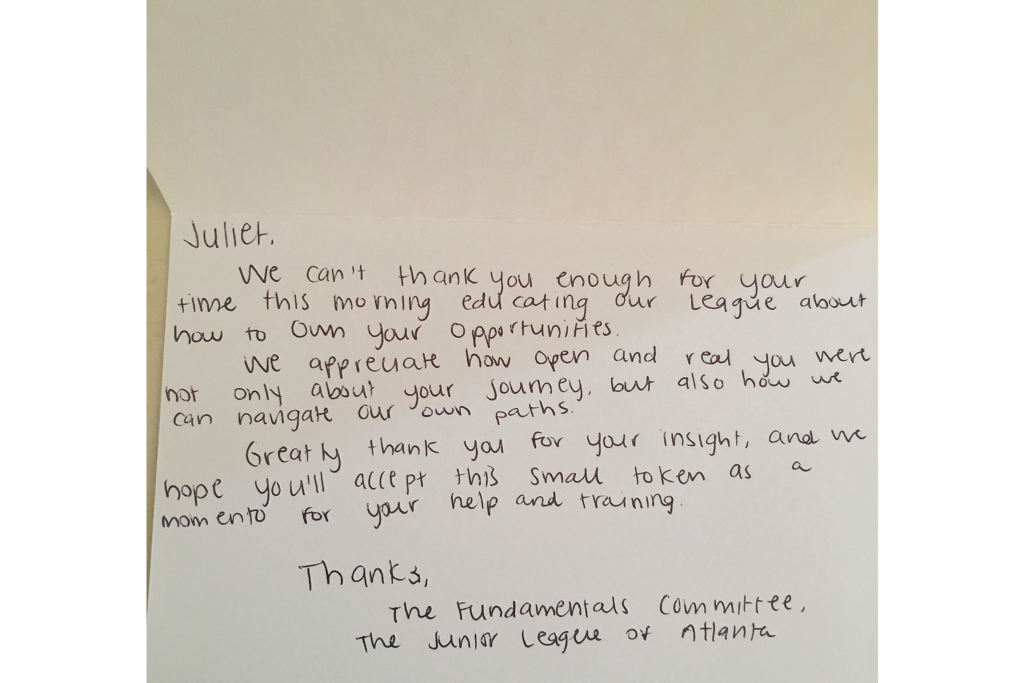 Juliet,
We can't thank you enough for your
time this morning educating our League about
how to Own your Opportunities.
We appreciate how open and real you were
not only about your journey, but also how we
can navigate our own paths.
Greatly thank you for your insight, and we
hope you'll accept this small token as a
momento for your help and training.
Thanks,
The Fundamentals Committee,
The Junior League of Atlanta